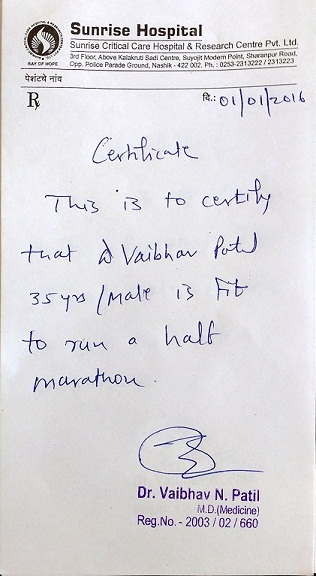 Sunrise Hospital
Sunrise Critical Care Hospital & Research Centre Pvt. Ltd.
3rd Floor, Above Kalakruti Sadi Centre, Suyojit Modern Point, Sharanpur Road,
Opp. Police Parade Ground, Nashik - 422 002. Ph. : 0253-2313222 / 2313223
RAY OF HOPE
पेशंटचे नांव
℞
दि.: 01/01/2016
Certificate
This is to certify
that Vaibhav Patil
35 yrs / Male is Fit
to run a half
marathon.
Dr. Vaibhav N. Patil
M.D.(Medicine)
Reg.No. - 2003 / 02 / 660